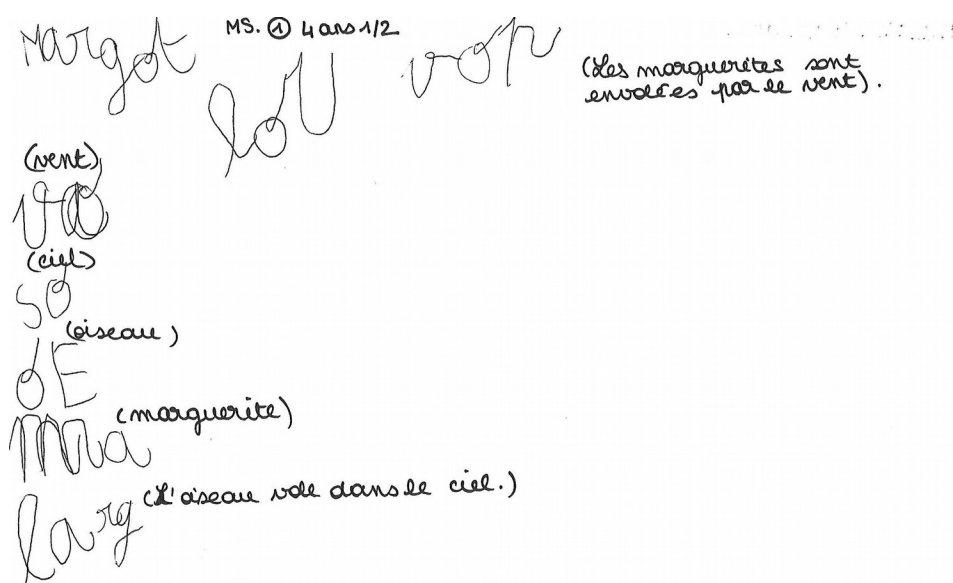 Margot MS. ① 4 ans 1/2
lolU vop
(Les marguerites sont
envolées par le vent).
(vent)
vo
(ciel)
so
(oiseau)
dE
(marguerite)
mra
(L'oiseau vole dans le ciel.)
larg